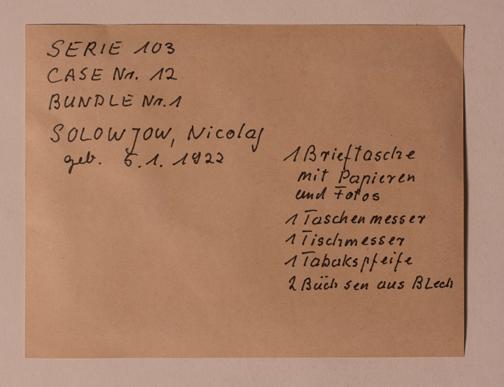 SERIE 103
CASE Nr. 12
BUNDLE Nr. 1
SOLOWJOW, Nicolaj
geb. 5.1.1922
1 Brieftasche
mit Papieren
und Fotos
1 Taschenmesser
1 Tischmesser
1 Tabakspfeife
2 Büchsen aus Blech